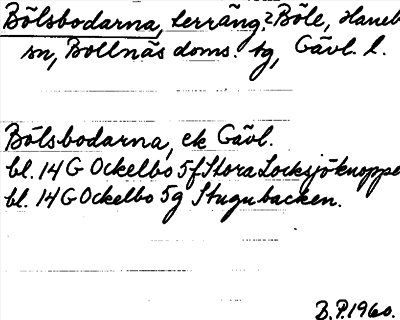 Bölsbodarna, terräng? Böle, Haneb
sn, Bollnäs doms. tg, Gävl. l.
Bölsbodarna, ek Gävl.
bl. 14 G Ockelbo 5f Stora Locksjöknoppe
bl. 14 G Ockelbo 5g Stugubacken.
B.P. 1960.